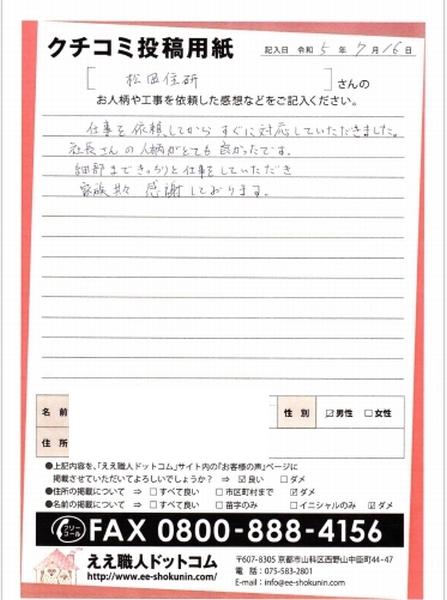 クチコミ投稿用紙
記入日 令和 5 年 7 月 16 日
[ 松岡住研 ] さんの
お人柄や工事を依頼した感想などをご記入ください。
仕事を依頼してからすぐに対応していただきました。
社長さんの人柄がとても良かったです。
細部まできっちりと仕事をしていただき
家族共々 感謝しております。
名前 性別 ☑男性 □女性
住所
●上記内容を、「ええ職人ドットコム」サイト内の『お客様の声』ページに
掲載させていただいてよろしいでしょうか? ⇒ ☑良い □ダメ
●住所の掲載について ⇒ □すべて良い □市区町村まで ☑ダメ
●名前の掲載について ⇒ □すべて良い □苗字のみ □イニシャルのみ ☑ダメ
フリーコール FAX 0800-888-4156
ええ職人ドットコム
http://www.ee-shokunin.com/
〒607-8305 京都市山科区西野山中臣町44-47
電話:075-583-2801
E-mail:info@ee-shokunin.com